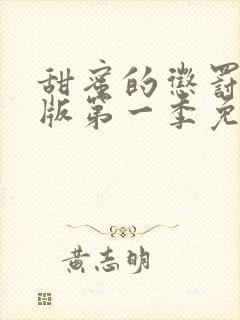 甜蜜的懲罰
版第一季免
黃志明